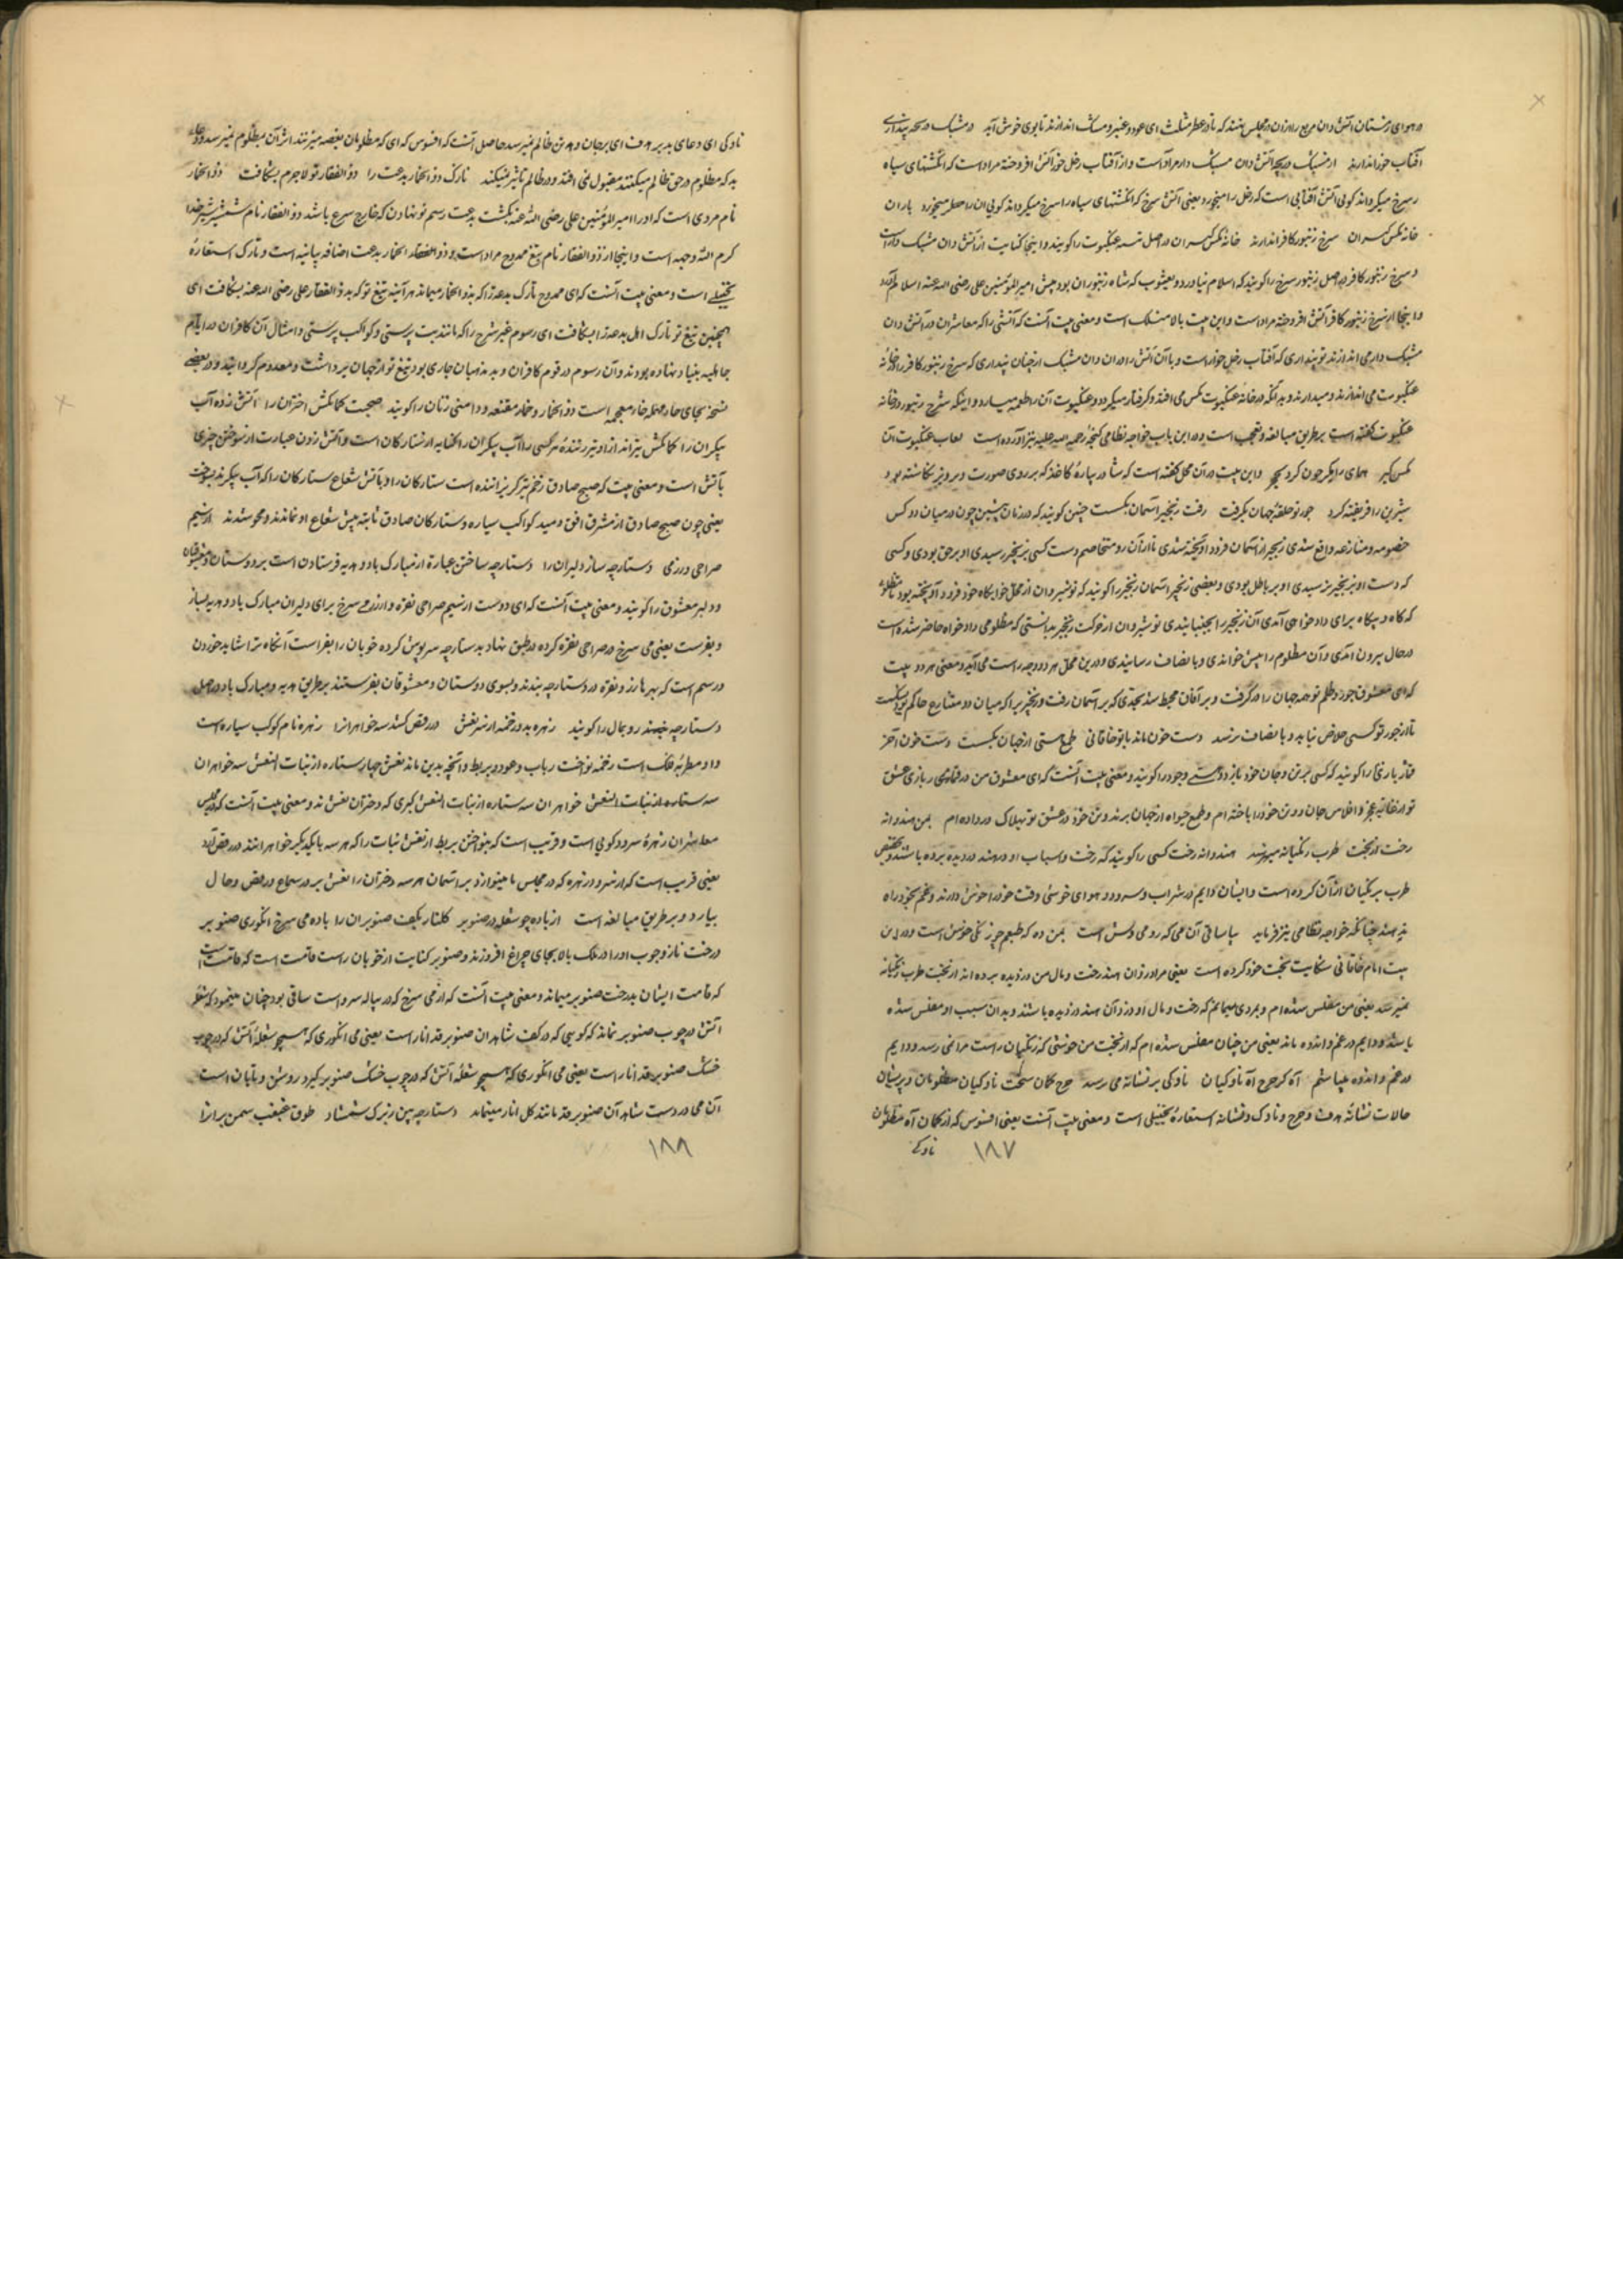 در هوای زمستان آتش دان مربع را در آن مجلس نهند که تا در عطر مثلث ای عود و عنبر و مشک اندازند تا بوی خوش آید
آفتاب خور اندازند از مشبک دریچه آتش دان مشبک دار مراد است و از آفتاب زحل خور آتش افروخته مراد است که انگشتهای سیاه
سرخ میگرداند گویی آتش آفتابی است که زحل را میخورد یعنی آتش سرخ که انگشتهای سیاه را سرخ میگرداند گویی آن را حمل میخورد یاران
خانه مگس گیران سرخ زنبور کافر اندازند خانه مگس گیران در اصل تنیده عنکبوت را گویند و اینجا کنایت از آتش دان مشبک دار است
و سرخ زنبور کافر در اصل زنبور سرخ را گویند که اسلام نیاورد و یعسوب که شاه زنبوران بود پیش امیر المؤمنین علی رضی الله عنه اسلام آورد
و اینجا از سرخ زنبور کافر آتش افروخته مراد است و این بیت بالا منسلک است و معنی بیت آنست که آتشی را که معاشران در آتش دان
مشبک دار می اندازند تو پنداری که آفتاب زحل خوار است و یا آن آتش را در آن دان مشبک از چنان پنداری که سرخ زنبور کافر را در خانه
عنکبوت می اندازند و میدارند و بدانکه در خانه عنکبوت مگس می افتد و گرفتار میگردد و عنکبوت آن را طعمه میسازد و اینکه سرخ زنبور در خانه
عنکبوت گفته است بر طریق مبالغه و تعجب است و در این باب خواجه نظامی گنجه رحمه الله علیه نیز آورده است لعاب عنکبوت آن
مگس گیر همای را نگر چون کرد نخچیر و این بیت در آن محل گفته است که شاپور پاره کاغذ که بر روی صورت پرویز نگاشته بود و
شیرین را فریفته کرد جور تو حلقه جهان بگرفت رفت زنجیر آسمان بگسست چنین گویند که در زمان پیشین چون در میان دو کس
خصومه و منازعه واقع شدی زنجیر از آسمان فرود آویخته شدی تا از آن دو متخاصم دست کسی بزنجیر رسیدی او بر حق بودی و کسی
که دست او بزنجیر نرسیدی او بر باطل بودی و بعضی زنجیر آسمان زنجیر را گویند که نوشیروان از محل خوابگاه خود فرود آویخته بود تا مظلوم
که گاه و بیگاه برای داد خواهی آمدی آن زنجیر را بجنبانیدی نوشیروان از حرکت زنجیر بدانستی که مظلومی داد خواه حاضر شده است
در حال بیرون آمدی و آن مظلوم را پیش خواندی و با انصاف رسانیدی و درین محل هر دو وجه راست می آید و معنی هر دو بیت
که ای معشوق جور و ظلم تو همه جهان را در گرفت و بر آفاق محیط شد بحدی که بر آسمان رفت و زنجیر را که میان دو متنازع حاکم بود بگسست
تا از جور تو کسی خلاص نیابد و با انصاف نرسد دست خون ماند با تو خاقانی طمع هستی از جهان بگسست دست خون آخر
قمار بازی را گویند که کسی بر تن و جان خود بازد و هستی وجود را گویند و معنی بیت آنست که ای معشوق من در قمار بازی عشق
تو از غایت عجز و افلاس جان و تن خود را باخته ام و طمع حیوة از جهان بریدم و تن خود در عشق تو بهلاک در داده ام بمن هندوانه
رخت از بخت طرب زنگیانه میرسد هندوانه رخت کسی را گویند که رخت و اسباب او در هند دزدیده برده باشند و تخصیص
طرب بزنگیان از آن کرده است و ایشان دایم در شراب و سرود و هوای خوشی وقت خود را خوش دارند و غم بخود راه
ندهند چنانکه خواجه نظامی نیز فرماید بیا ساقی آن می که رومی وش است بمن ده که طبعم چو زنگی خوش است و در این
بیت امام خاقانی شکایت بخت خود کرده است یعنی مرا دزدان هند رخت و مال من دزدیده برده اند از بخت طرب زنگیانه
نمیرسد یعنی من مفلس شده ام و بمردی میمانم که رخت و مال او دزدان هند دزدیده باشند و بدان سبب او مفلس شده
باشد و دایم در غم و اندوه ماند یعنی من چنان مفلس شده ام که از بخت من خوشی که زنگیان راست مرا نمی رسد و دایم
در غم و اندوه میباشم آه کز چرخ آه ناوکیان ناوکی بر نشانه می رسد چرخ کمان سخت ناوکیان مظلومان و پریشان
حالات نشانه هدف و چرخ و ناوک و نشانه استعاره تخییلی است و معنی بیت آنست یعنی افسوس که از کمان آه مظلومان
ناوکی
۱۸۷
ناوکی ای دعای بد بر هدف ای بر جان و تن ظالم نمیرسد حاصل آنست که افسوس که ای که مظلومان بغصه میزنند از آن مظلوم نمیرسد و دعای
بد که مظلوم در حق ظالم میکنند مقبول نمی افتد و در ظالم تاثیر نمیکند تارک ذو الخمار بدعت را ذو الفقار تو لاجرم بشکافت ذو الخمار
نام مردی است که او را امیر المؤمنین علی رضی الله عنه بکشت بدعت رسم نو نهادن که خارج شرع باشد ذو الفقار نام شمشیر شیر خدا
کرم الله وجهه است و اینجا از ذو الفقار نام تیغ ممدوح مراد است و ذو الخمار بدعت اضافه بیانیه است و تارک استعاره
تخییلی است و معنی بیت آنست که ای ممدوح تارک بدعت را که بذو الخمار میماند هر آینه تیغ تو که بذو الفقار علی رضی الله عنه بشکافت ای
همچنین تیغ تو تارک اهل بدعت را بشکافت ای رسوم غیر شرع را که مانند بت پرستی و کواکب پرستی و امثال آن کافران در ایام
جاهلیه بنیاد نهاده بودند و آن رسوم در قوم کافران و بد مذهبان جاری بود تیغ تو از جهان برداشت و معدوم گردانید و در بعضی
نسخه بجای حاء مهمله خاء معجمه است ذو الخمار و خمار مقنعه و دامنی زنان را گویند صبحت کمانکش اختران را آتش زده آب
پیکران را کمانکش تیرانداز و تیر زننده هر کسی را آب پیکران را کنایه از ستارگان است و آتش زدن عبارت از سوختن چیزی
بآتش است و معنی بیت که صبح صادق زخم تیر گریزاننده است ستارگان را و بآتش شعاع ستارگان را که آب پیکرند بسوخت
یعنی چون صبح صادق از مشرق افق دمید کواکب سیاره و ستارگان صادق ثابته پیش شعاع او نماندند و محو شدند از سیم
صراحی و زر می دستارچه ساز دلبران را دستارچه ساختن عبارة از مبارک باد و هدیه فرستادن است بر دوستان و معشوقان
و دلبر معشوق را گویند و معنی بیت آنست که ای دوست از سیم صراحی نقره و از زر می سرخ برای دلبران مبارک باد و هدیه بساز
و بفرست یعنی می سرخ در صراحی نقره کرده در طبق نهاد بدستارچه سرپوش کرده خوبان را بفرست آنگاه ترا شاید خوردن
و رسم است که بهر ما زر و نقره در دستارچه بندند و بسوی دوستان و معشوقان بفرستند بر طریق هدیه و مبارک باد و در اصل
دستارچه چیند رومال را گویند زهره بدو زخمه از سر نعش در رقص کشد سه خواهران را زهره نام کوکب سیاره است
و او مطربه فلک است زخمه نواخت رباب و عود و بربط و آنچه بدین ماند نعش چهار ستاره از نبات النعش سه خواهران
سه ستاره از نبات النعش خواهران سه ستاره از نبات النعش کبری که دختران نعش اند و معنی بیت آنست که در مجلس
معاشران زهره سرود گوی است و قریب است که بنواختن بربط از نعش نبات را که هر سه با یکدیگر خواهرانند در رقص آرد
یعنی قریب است که از سرود زهره که در مجالس ما مینوازد بر آسمان هر سه دختران را نعش بر در سماع و رقص و حال
بیارد و بر طریق مبالغه است از باده چو شعله در صنوبر گلنار بکف صنوبران را باده می سرخ انگوری صنوبر
درخت ناز و چوب او را در ملک بالا بجای چراغ افروزند و صنوبر کنایت از خوبان راست قامت است که قامت راست
که قامت ایشان بدرخت صنوبر میماند و معنی بیت آنست که از می سرخ که در پیاله سر و است ساقی بود چنان مینمود که شعله
آتش در چوب صنوبر نماند که گویی که در کف شاهدان صنوبر قد انار است یعنی می انگوری که همچو شعله آتش که در چوب
خشک صنوبر قد انار است یعنی می انگوری که همچو شعله آتش که در چوب خشک صنوبر گیرد روشن و تابان است
آن می در دست شاهد آن صنوبر قد مانند گل انار مینماید دستارچه بین ز برگ شمشاد طوق غبغب سمن بران را
۱۸۸